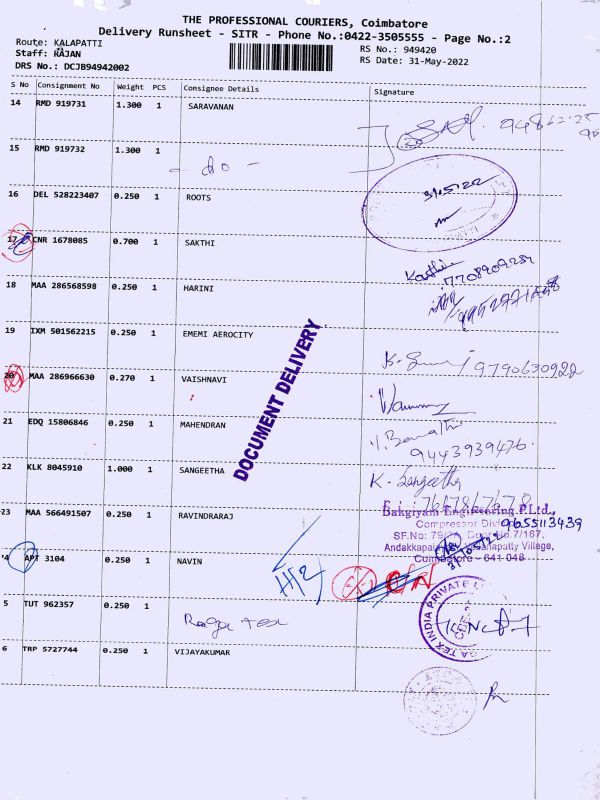 THE PROFESSIONAL COURIERS, Coimbatore
Delivery Runsheet - SITR - Phone No.:0422-3505555 - Page No.:2
Route: KALAPATTI
RS No.: 949420
Staff: RAJAN
RS Date: 31-May-2022
DRS No.: DCJB94942002
S No Consignment No Weight PCS Consignee Details Signature
14 RMD 919731 1.300 1 SARAVANAN
15 RMD 919732 1.300 1
- do -
16 DEL 528223407 0.250 1 ROOTS
31/5/22
17 CNR 1678085 0.700 1 SAKTHI
7708909284
18 MAA 286568598 0.250 1 HARINI
19 IXM 501562215 0.250 1 EMEMI AEROCITY
9790630922
DOCUMENT DELIVERY
20 MAA 286966630 0.270 1 VAISHNAVI
21 EDQ 15806846 0.250 1 MAHENDRAN
9443939476
22 KLK 8045910 1.000 1 SANGEETHA
K. Sangeetha
23 MAA 566491507 0.250 1 RAVINDRARAJ
Bakgiyam Engineering P.Ltd.,
9655113439
4 APT 3104 0.250 1 NAVIN
Coimbatore - 641 048
5 TUT 962357 0.250 1
Raga tex
6 TRP 5727744 0.250 1 VIJAYAKUMAR